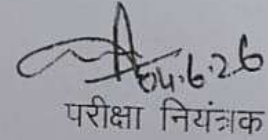 04.6.26
परीक्षा नियंत्रक